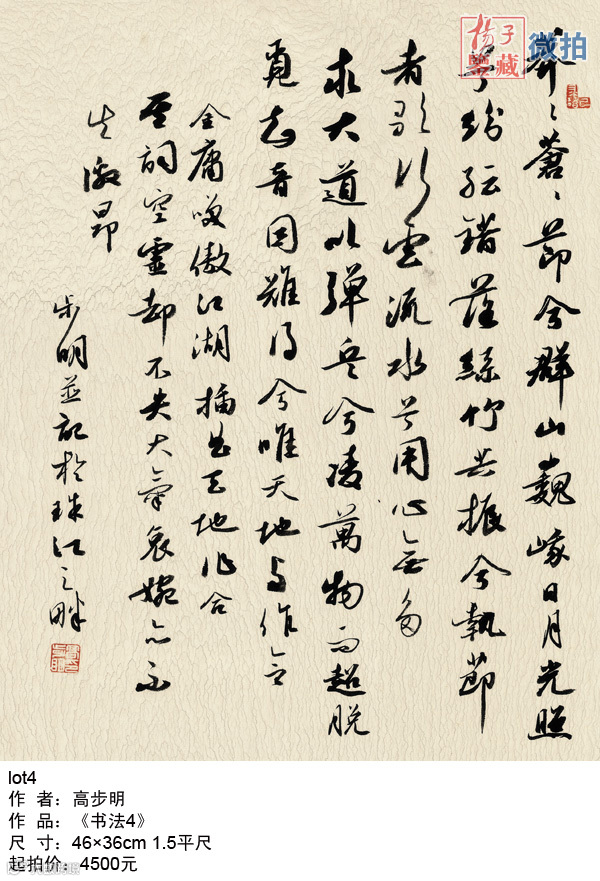 莽〻蒼〻節兮群山巍峨日月光照
兮紛紜錯落絲竹共振兮執節
者歌行雲流水兮用心無多
求大道以彈兵兮凌萬物而超脱
覓知音因難得兮唯天地與作合
金庸咲傲江湖插曲天地作合
詞空靈却不失大氣哀婉亦不
失激昂
步明並記於珠江之畔
揚子
藏
微拍
lot4
作 者：高步明
作 品：《书法4》
尺 寸：46×36cm 1.5平尺
起拍价：4500元